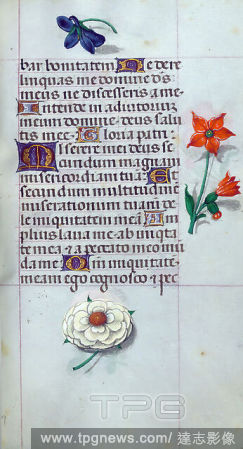 bar bonitatem Ne dere
linquas me domine de's
meus ne discesseris a me
Intende in adiutoriuz
meum domine deus salu
tis mee. Gloria patri.
Miserere mei deus se
cundum magnam
misericordiam tuaz Et
secundum multitudinem
miserationum tuaruz de
le iniquitatem meaz Am
plius laua me ab iniqta
te mea & a peccato meo mu
da me Qm iniquitatē
meam ego cognosco & pec
TPG
www.tpgnews.com/達志影像